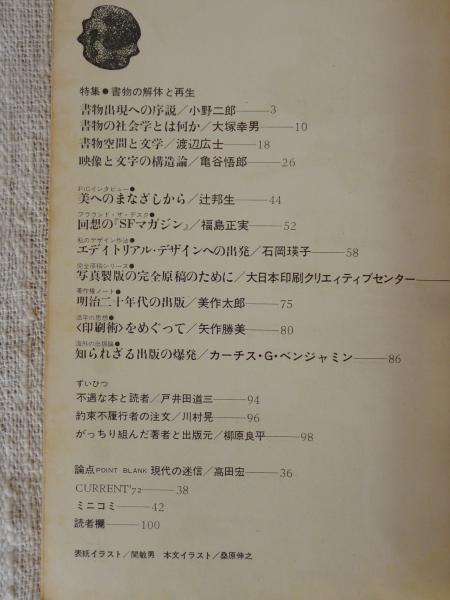 特集●書物の解体と再生
書物出現への序説/小野二郎――3
書物の社会学とは何か/大塚幸男――10
書物空間と文学/渡辺広士――18
映像と文字の構造論/亀谷悟郎――26
PICインタビュー●
美へのまなざしから/辻邦生――44
アラウンド・ザ・デスク●
回想の『SFマガジン』/福島正実――52
私のデザイン作法●
エディトリアル・デザインへの出発/石岡瑛子――58
完全原稿シリーズ●
写真製版の完全原稿のために/大日本印刷クリエイティブセンター――
著作権ノート●
明治二十年代の出版/美作太郎――75
活字の思想●
〈印刷術〉をめぐって/矢作勝美――80
海外の出版論●
知られざる出版の爆発/カーチス・G・ベンジャミン――86
ずいひつ
不遇な本と読者/戸井田道三――94
約束不履行者の注文/川村晃――96
がっちり組んだ著者と出版元/柳原良平――98
論点 POINT BLANK 現代の迷信/高田宏――36
CURRENT'72――38
ミニコミ――42
読者欄――100
表紙イラスト/間敏男 本文イラスト/桑原伸之